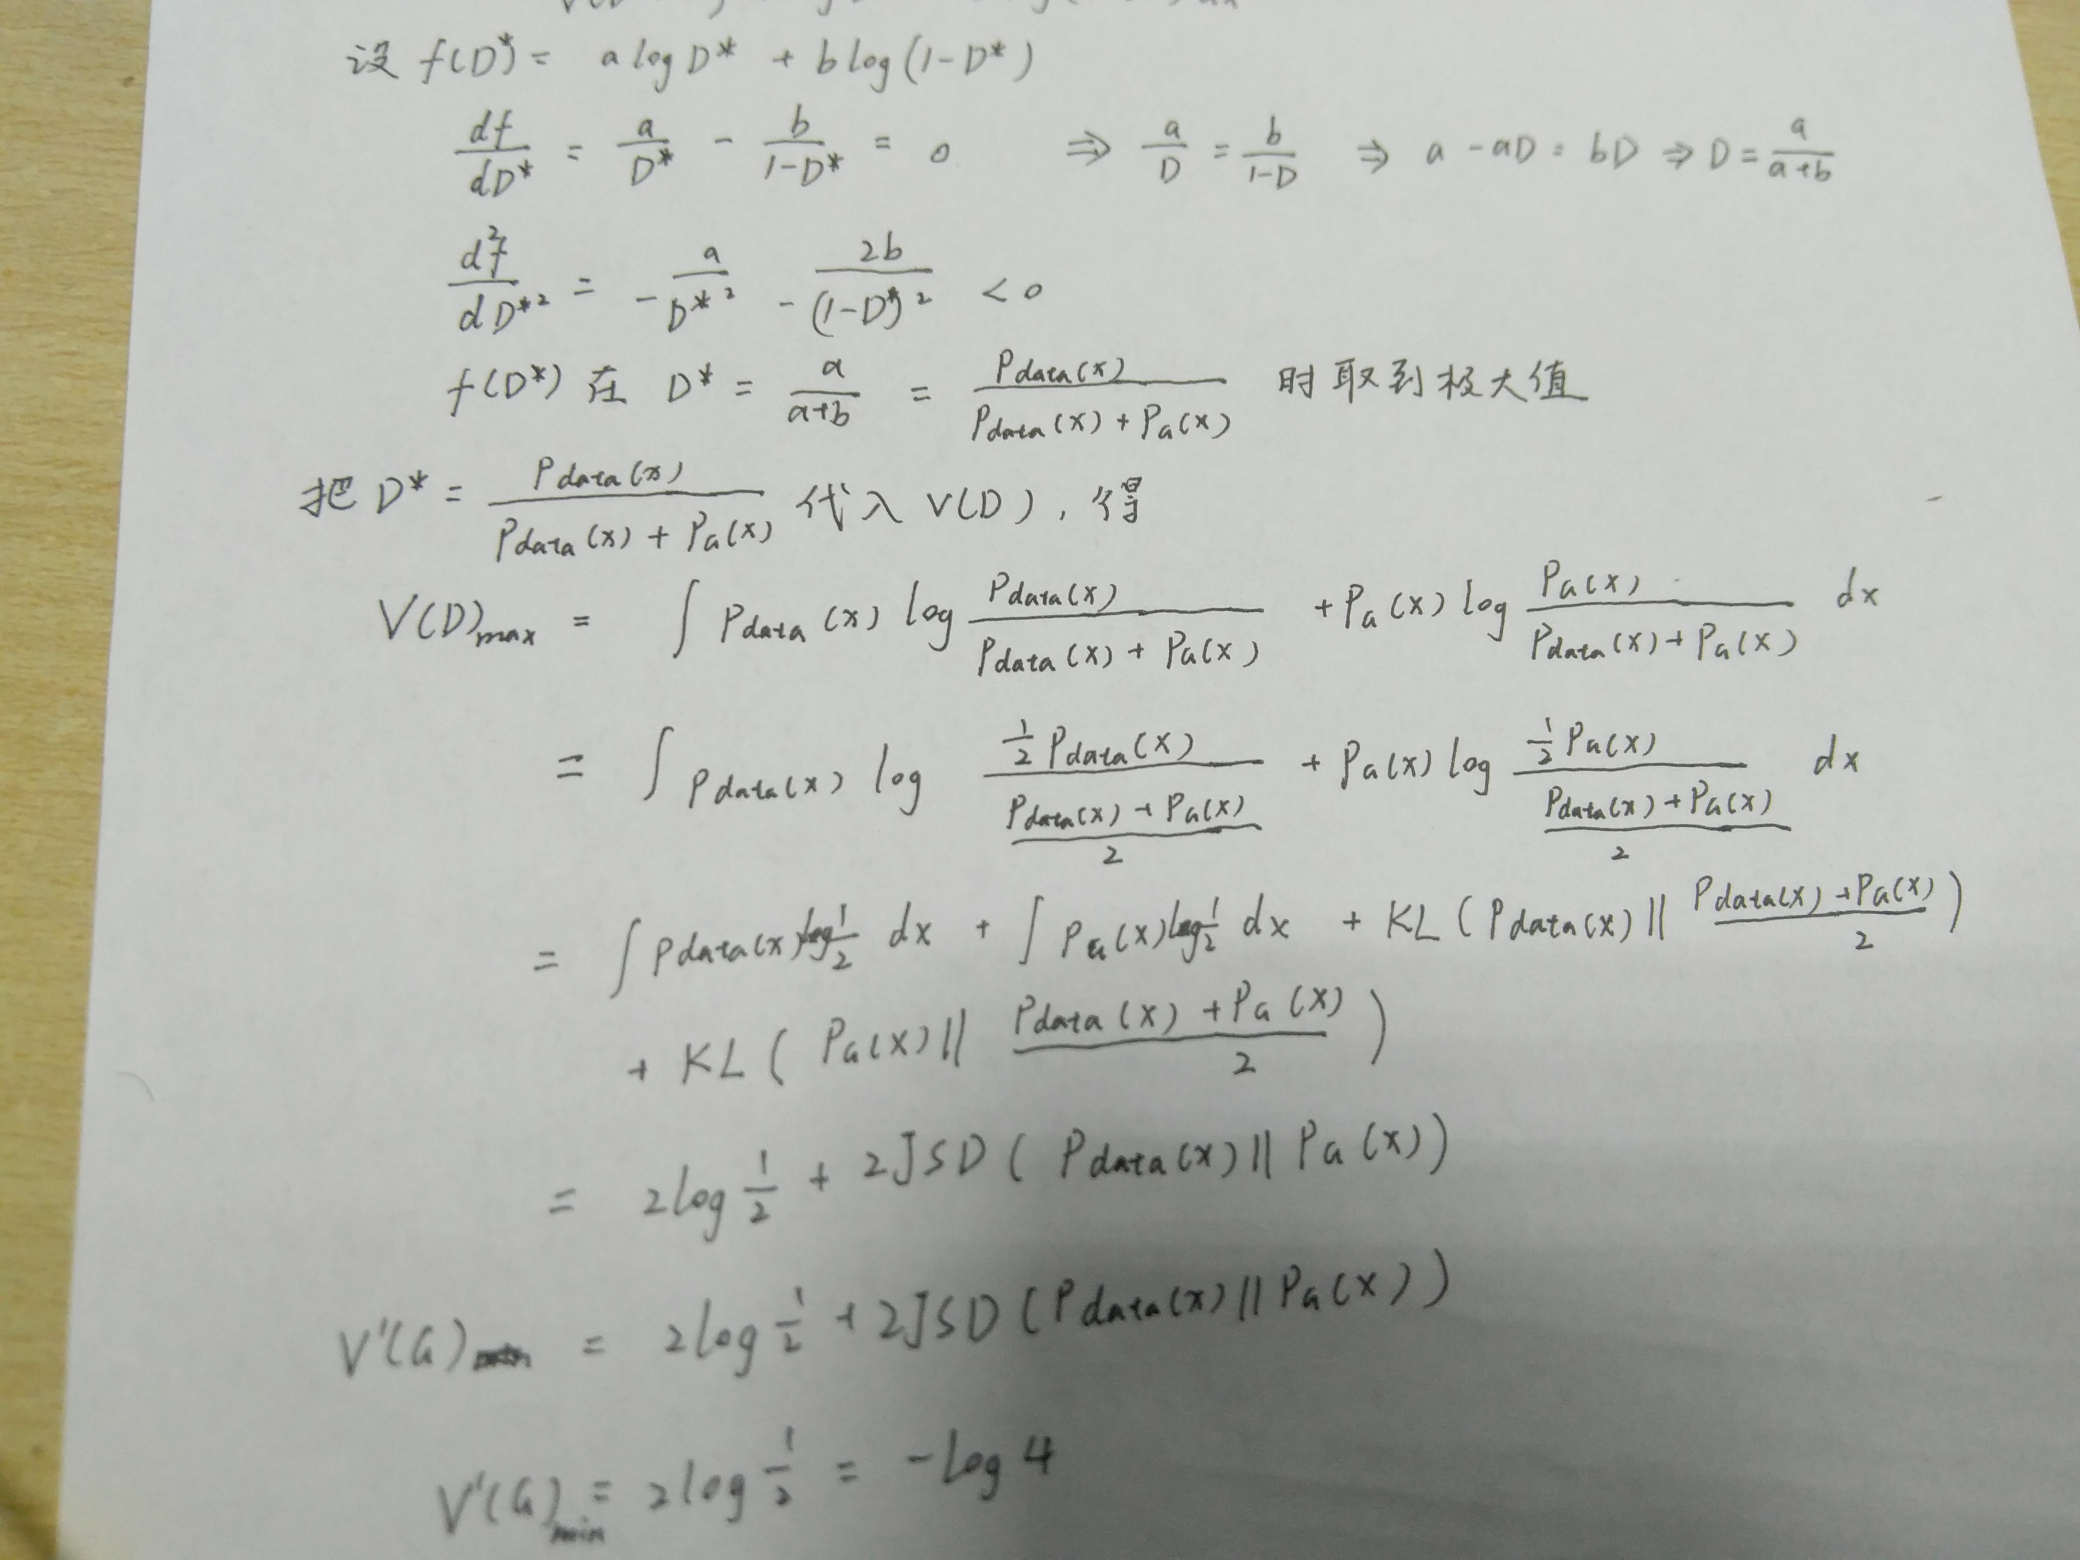 设 f(D*) = a log D* + b log (1-D*)
df/dD* = a/D* - b/(1-D*) = 0 ⇒ a/D = b/(1-D) ⇒ a - aD = bD ⇒ D = a/(a+b)
d²f/dD*² = - a/D*² - 2b/(1-D*)² < 0
f(D*) 在 D* = a/(a+b) = Pdata(x)/(Pdata(x) + PG(x)) 时取到极大值
把 D* = Pdata(x)/(Pdata(x) + PG(x)) 代入 V(D), 得
V(D)max = ∫ Pdata(x) log Pdata(x)/(Pdata(x) + PG(x)) + PG(x) log PG(x)/(Pdata(x) + PG(x)) dx
= ∫ Pdata(x) log (1/2 Pdata(x))/((Pdata(x) + PG(x))/2) + PG(x) log (1/2 PG(x))/((Pdata(x) + PG(x))/2) dx
= ∫ Pdata(x) log 1/2 dx + ∫ PG(x) log 1/2 dx + KL ( Pdata(x) || (Pdata(x) + PG(x))/2 )
+ KL ( PG(x) || (Pdata(x) + PG(x))/2 )
= 2 log 1/2 + 2JSD ( Pdata(x) || PG(x) )
V'(G) = 2 log 1/2 + 2JSD ( Pdata(x) || PG(x) )
V'(G)min = 2 log 1/2 = - log 4